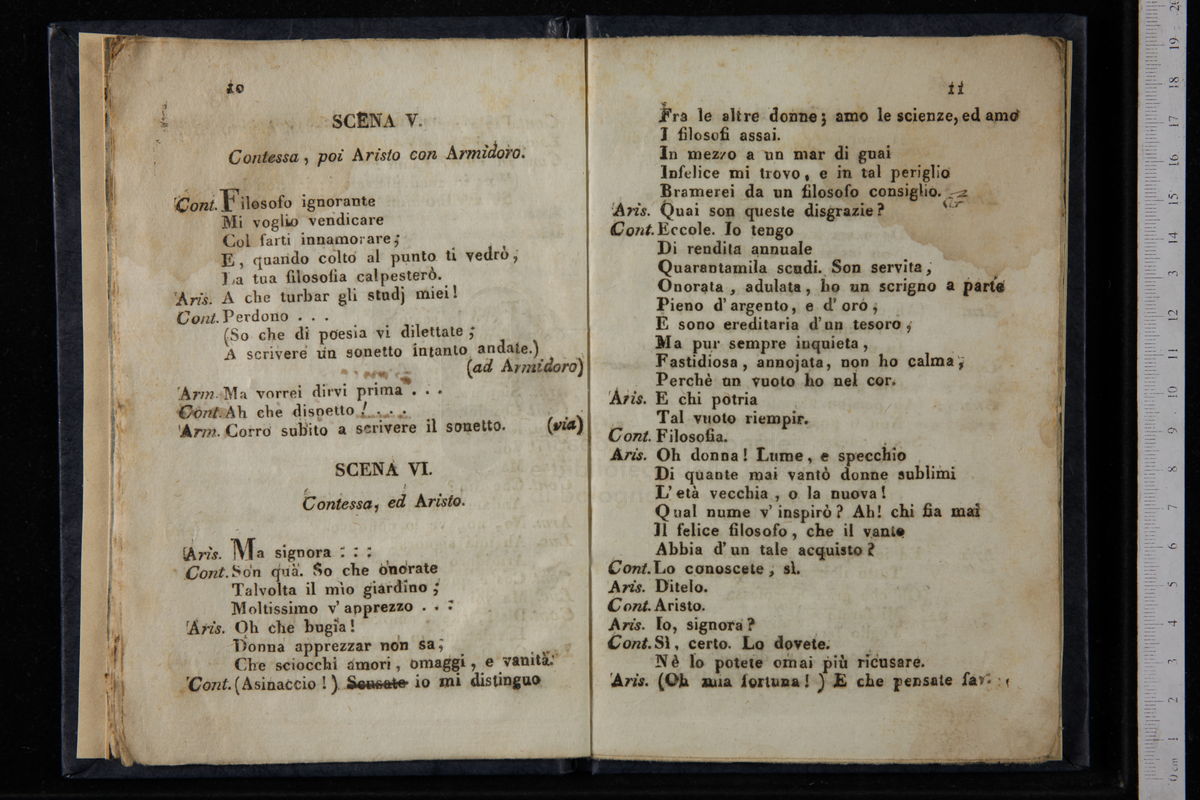 10
SCENA V.
Contessa, poi Aristo con Armidoro.
Cont. Filosofo ignorante
Mi voglio vendicare
Col farti innamorare;
E, quando colto al punto ti vedrò,
La tua filosofia calpesterò.
Aris. A che turbar gli studj miei!
Cont. Perdono . . .
(So che di poesia vi dilettate;
A scrivere un sonetto intanto andate.)
(ad Armidoro)
Arm. Ma vorrei dirvi prima . . .
Cont. Ah che dispetto! . . .
Arm. Corro subito a scrivere il sonetto. (via)
SCENA VI.
Contessa, ed Aristo.
Aris. Ma signora : : :
Cont. Son quà. So che onorate
Talvolta il mio giardino;
Moltissimo v'apprezzo . . :
Aris. Oh che bugia!
Donna apprezzar non sa;
Che sciocchi amori, omaggi, e vanità.
Cont. (Asinaccio!) Scusate io mi distinguo
11
Fra le altre donne; amo le scienze, ed amo
I filosofi assai.
In mezzo a un mar di guai
Infelice mi trovo, e in tal periglio
Bramerei da un filosofo consiglio.
Aris. Quai son queste disgrazie?
Cont. Eccole. Io tengo
Di rendita annuale
Quarantamila scudi. Son servita,
Onorata, adulata, ho un scrigno a parte
Pieno d'argento, e d'oro,
E sono ereditaria d'un tesoro,
Ma pur sempre inquieta,
Fastidiosa, annojata, non ho calma;
Perchè un vuoto ho nel cor.
Aris. E chi potria
Tal vuoto riempir.
Cont. Filosofia.
Aris. Oh donna! Lume, e specchio
Di quante mai vantò donne sublimi
L'età vecchia, o la nuova!
Qual nume v'inspirò? Ah! chi fia mai
Il felice filosofo, che il vante
Abbia d'un tale acquisto?
Cont. Lo conoscete, sì.
Aris. Ditelo.
Cont. Aristo.
Aris. Io, signora?
Cont. Sì, certo. Lo dovete.
Nè lo potete omai più ricusare.
Aris. (Oh mia fortuna!) E che pensate far